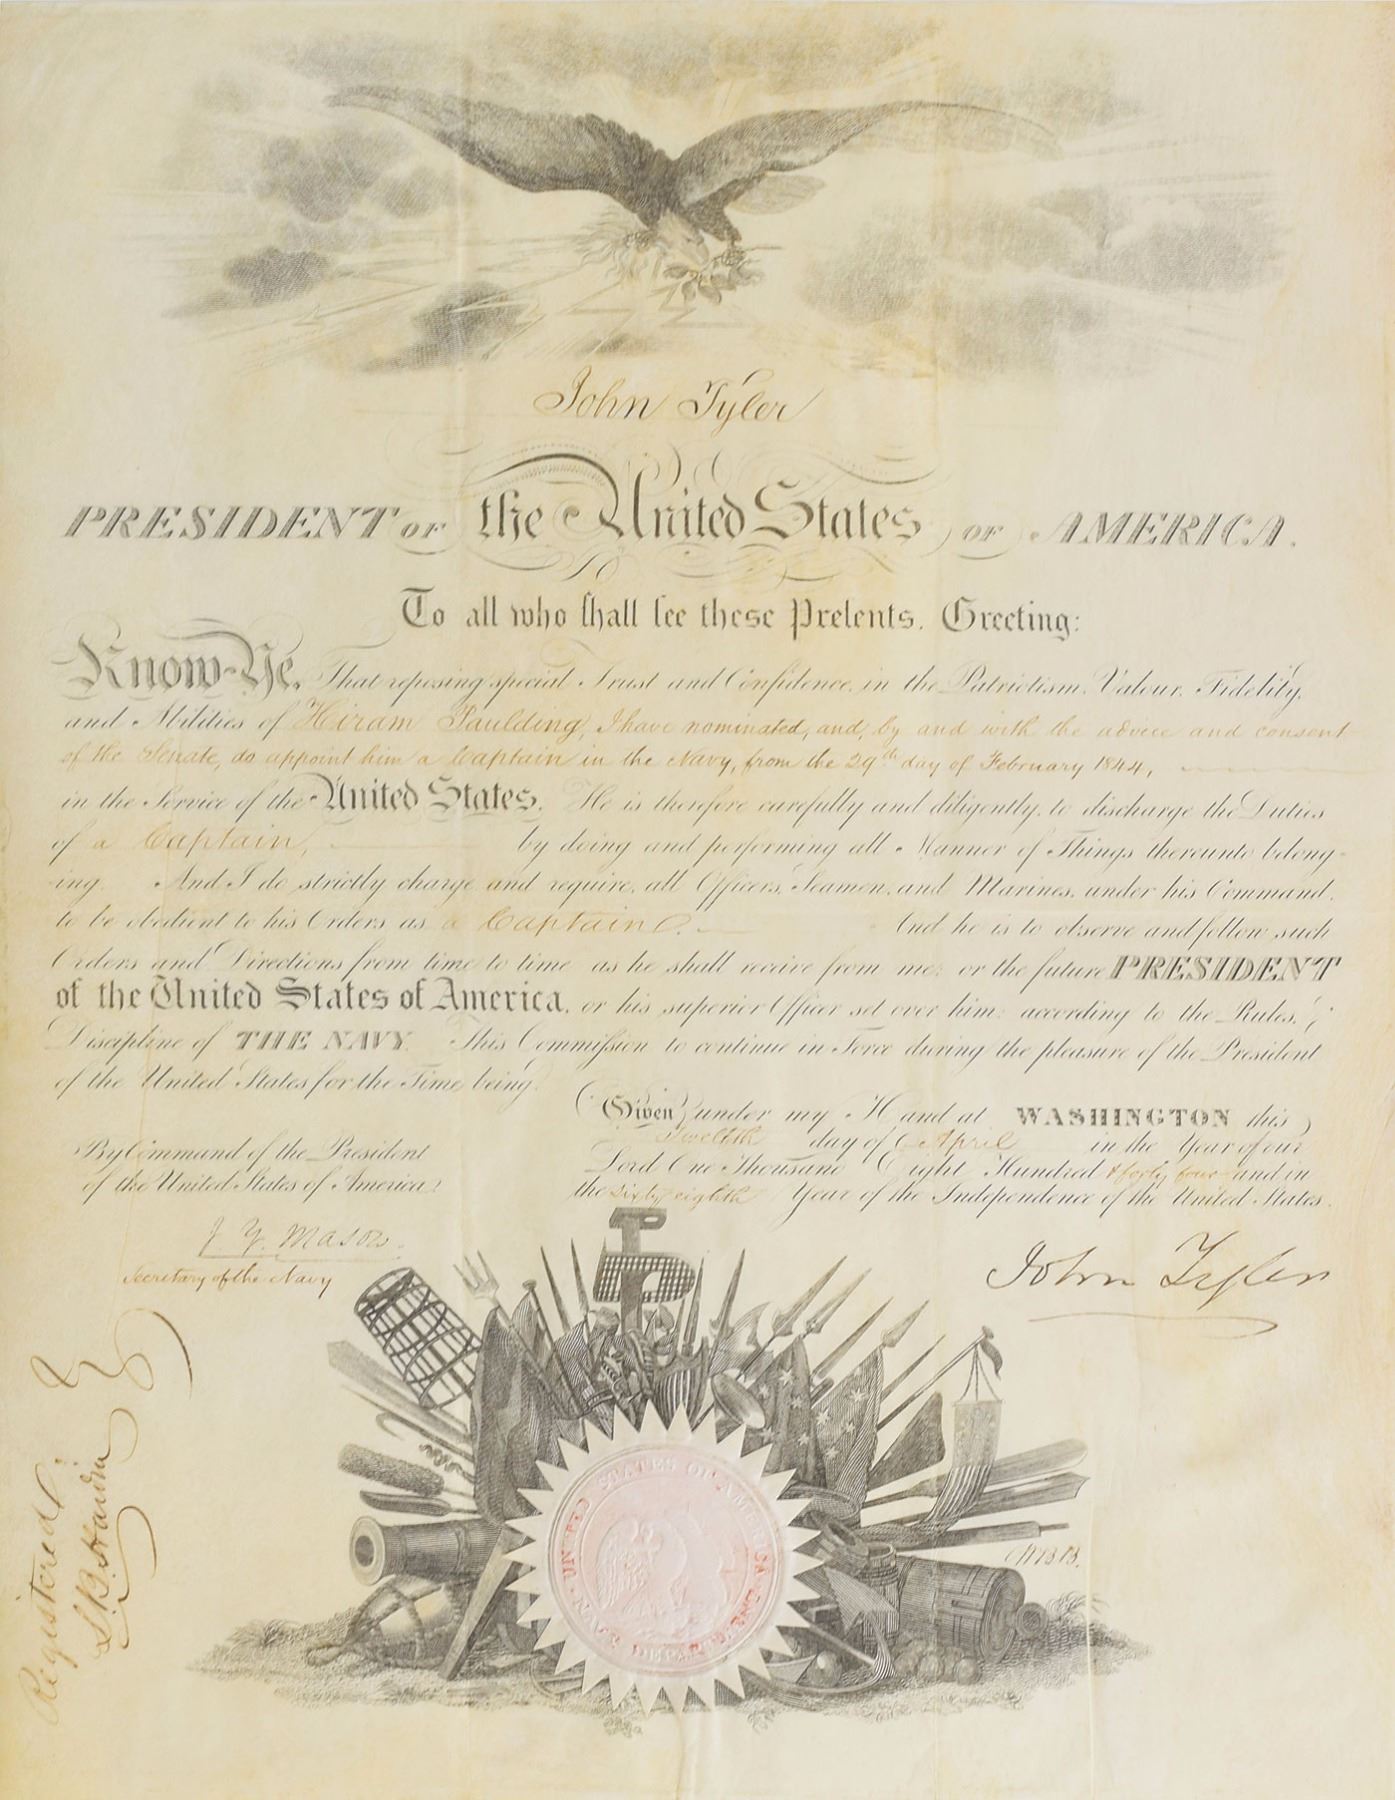 John Tyler
PRESIDENT OF the United States OF AMERICA.
To all who shall see these Presents, Greeting:
Know-Ye, That reposing special Trust and Confidence in the Patriotism, Valour, Fidelity,
and Abilities of Hiram Paulding, I have nominated, and, by and with the advice and consent
of the Senate, do appoint him a Captain in the Navy, from the 29th day of February 1844,
in the Service of the United States. He is therefore carefully and diligently to discharge the Duties
of a Captain, by doing and performing all Manner of Things thereunto belong-
ing. And I do strictly charge and require all Officers, Seamen, and Marines, under his Command,
to be obedient to his Orders as a Captain. And he is to observe and follow such
Orders and Directions from time to time as he shall receive from me: or the future PRESIDENT
of the United States of America, or his superior Officer set over him: according to the Rules, &
Discipline of THE NAVY. This Commission to continue in Force during the pleasure of the President
of the United States for the Time being.
Given under my Hand at WASHINGTON this
twelfth day of April in the Year of our
Lord One Thousand Eight Hundred & forty four and in
the sixty eighth Year of the Independence of the United States.
By Command of the President
of the United States of America:
J Y. Mason
Secretary of the Navy
John Tyler
Registered.
UNITED STATES OF AMERICA
NAVY DEPARTMENT